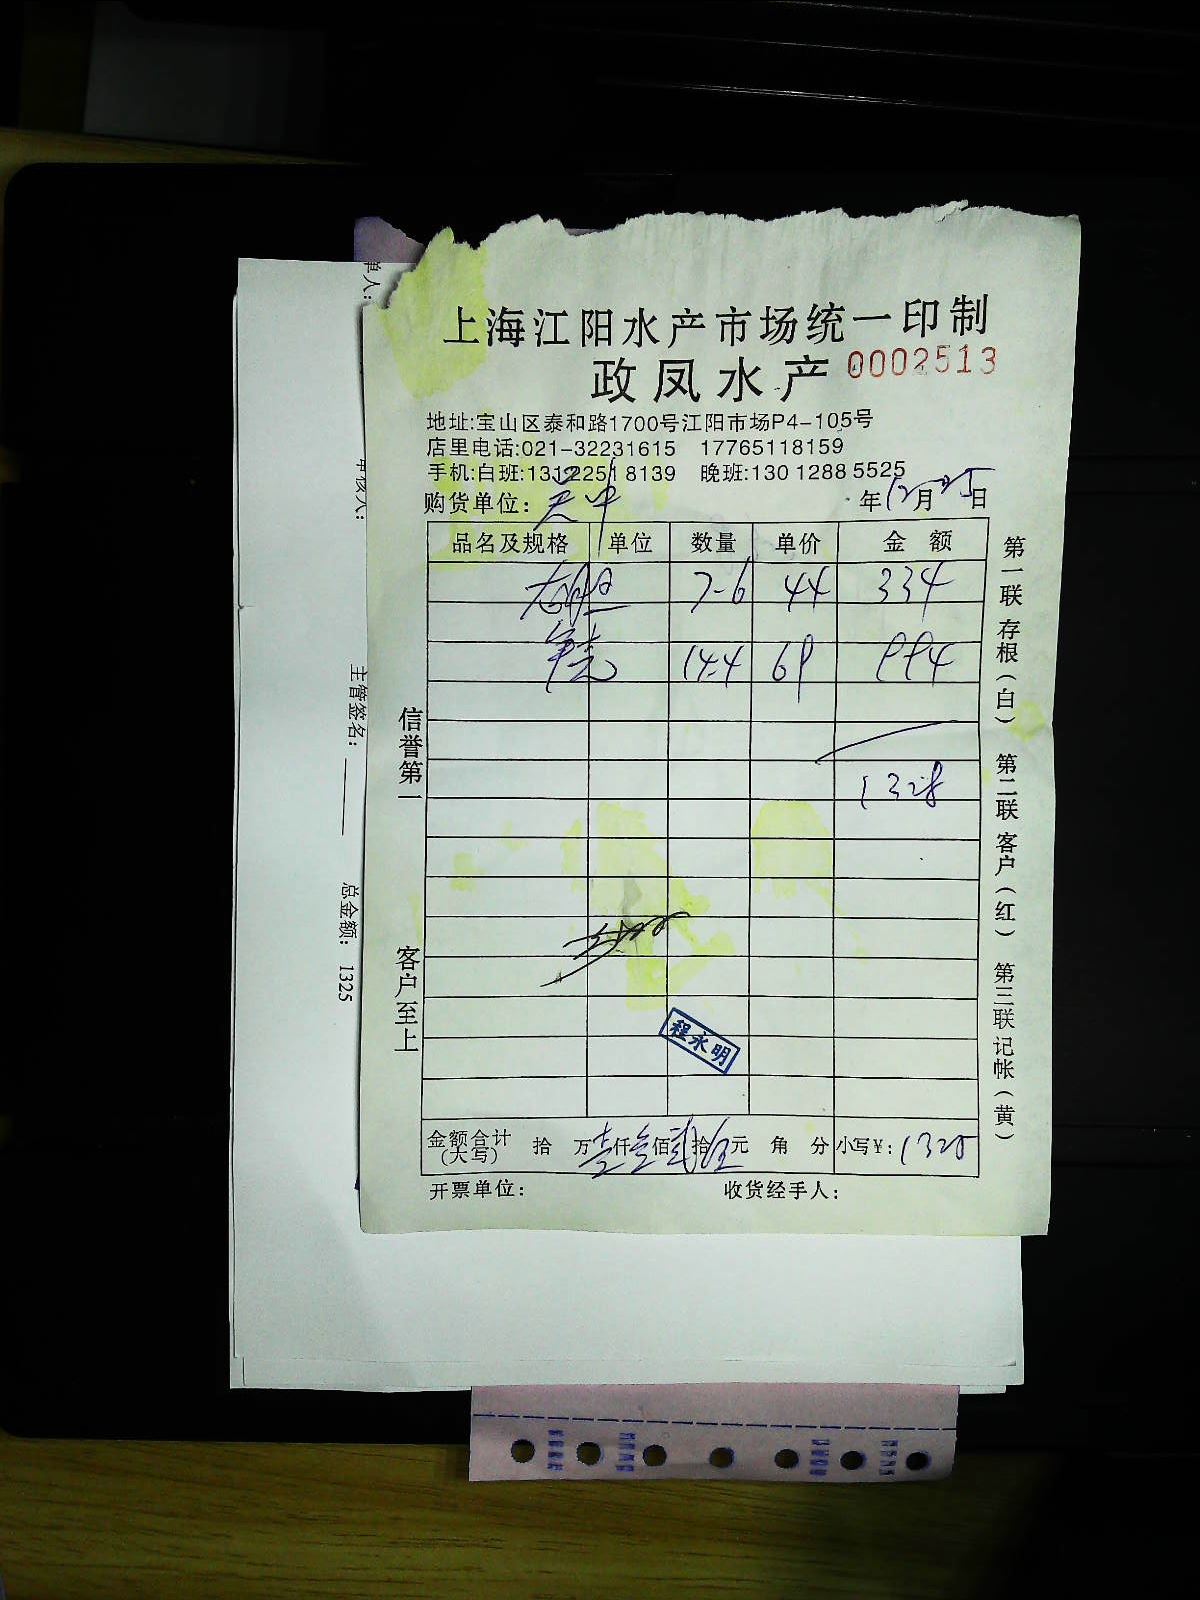 上海江阳水产市场统一印制
政凤水产 0002513
地址:宝山区泰和路1700号江阳市场P4-105号
店里电话:021-32231615 17765118159
手机:白班:13122518139 晚班:130 1288 5525
购货单位: 年12月25日
品名及规格 单位 数量 单价 金额
7-6 44 334
14.4 69 994
1328
程永明
金额合计(大写) 拾 万壹仟叁佰贰拾伍元 角 分 小写¥: 1325
开票单位: 收货经手人:
信誉第一 客户至上
第一联存根(白) 第二联客户(红) 第三联记帐(黄)
单人:
审核人:
主管签名:
总金额: 1325